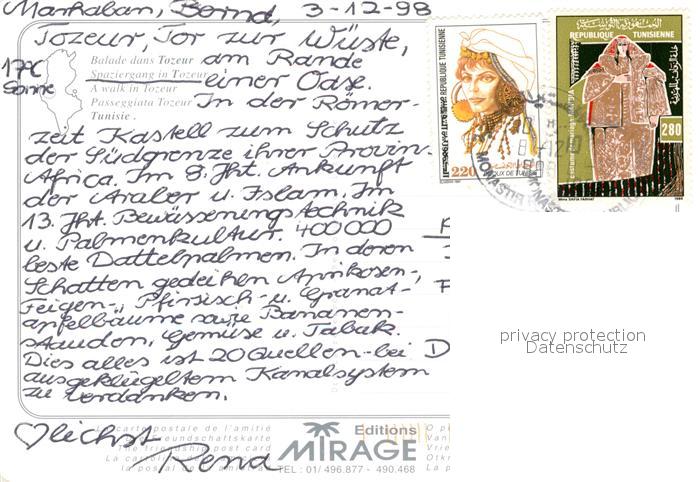 Marhaban, Bernd, 3-12-98
Tozeur, Tor zur Wüste,
am Rande
17°C
Sonne
einer Oase.
Balade dans Tozeur
Spaziergang in Tozeur
A walk in Tozeur
Passeggiata Tozeur
Tunisie.
In der Römer-
zeit Kastell zum Schutz
der Südgrenze ihrer Provinz
Africa. Im 8. Jht. Ankunft
der Araber u. Islam. Im
13. Jht. Bewässerungstechnik
u. Palmenkultur. 400 000
beste Dattelpalmen. In deren
Schatten gedeihen Aprikosen-,
Feigen-, Pfirsisch- u. Granat-
apfelbäume sowie Bananen-
stauden, Gemüse u. Tabak.
Dies alles ist 20 Quellen bei
ausgeklügeltem Kanalsystem
zu verdanken.
♡lichst
Rena
REPUBLIQUE TUNISIENNE
220
REPUBLIQUE TUNISIENNE
الجمهورية التونسية
280
MONASTIR
privacy protection
Datenschutz
La carte postale de l'amitié
The friendship post card
Editions
MIRAGE
TEL : 01/ 496.877 - 490.468